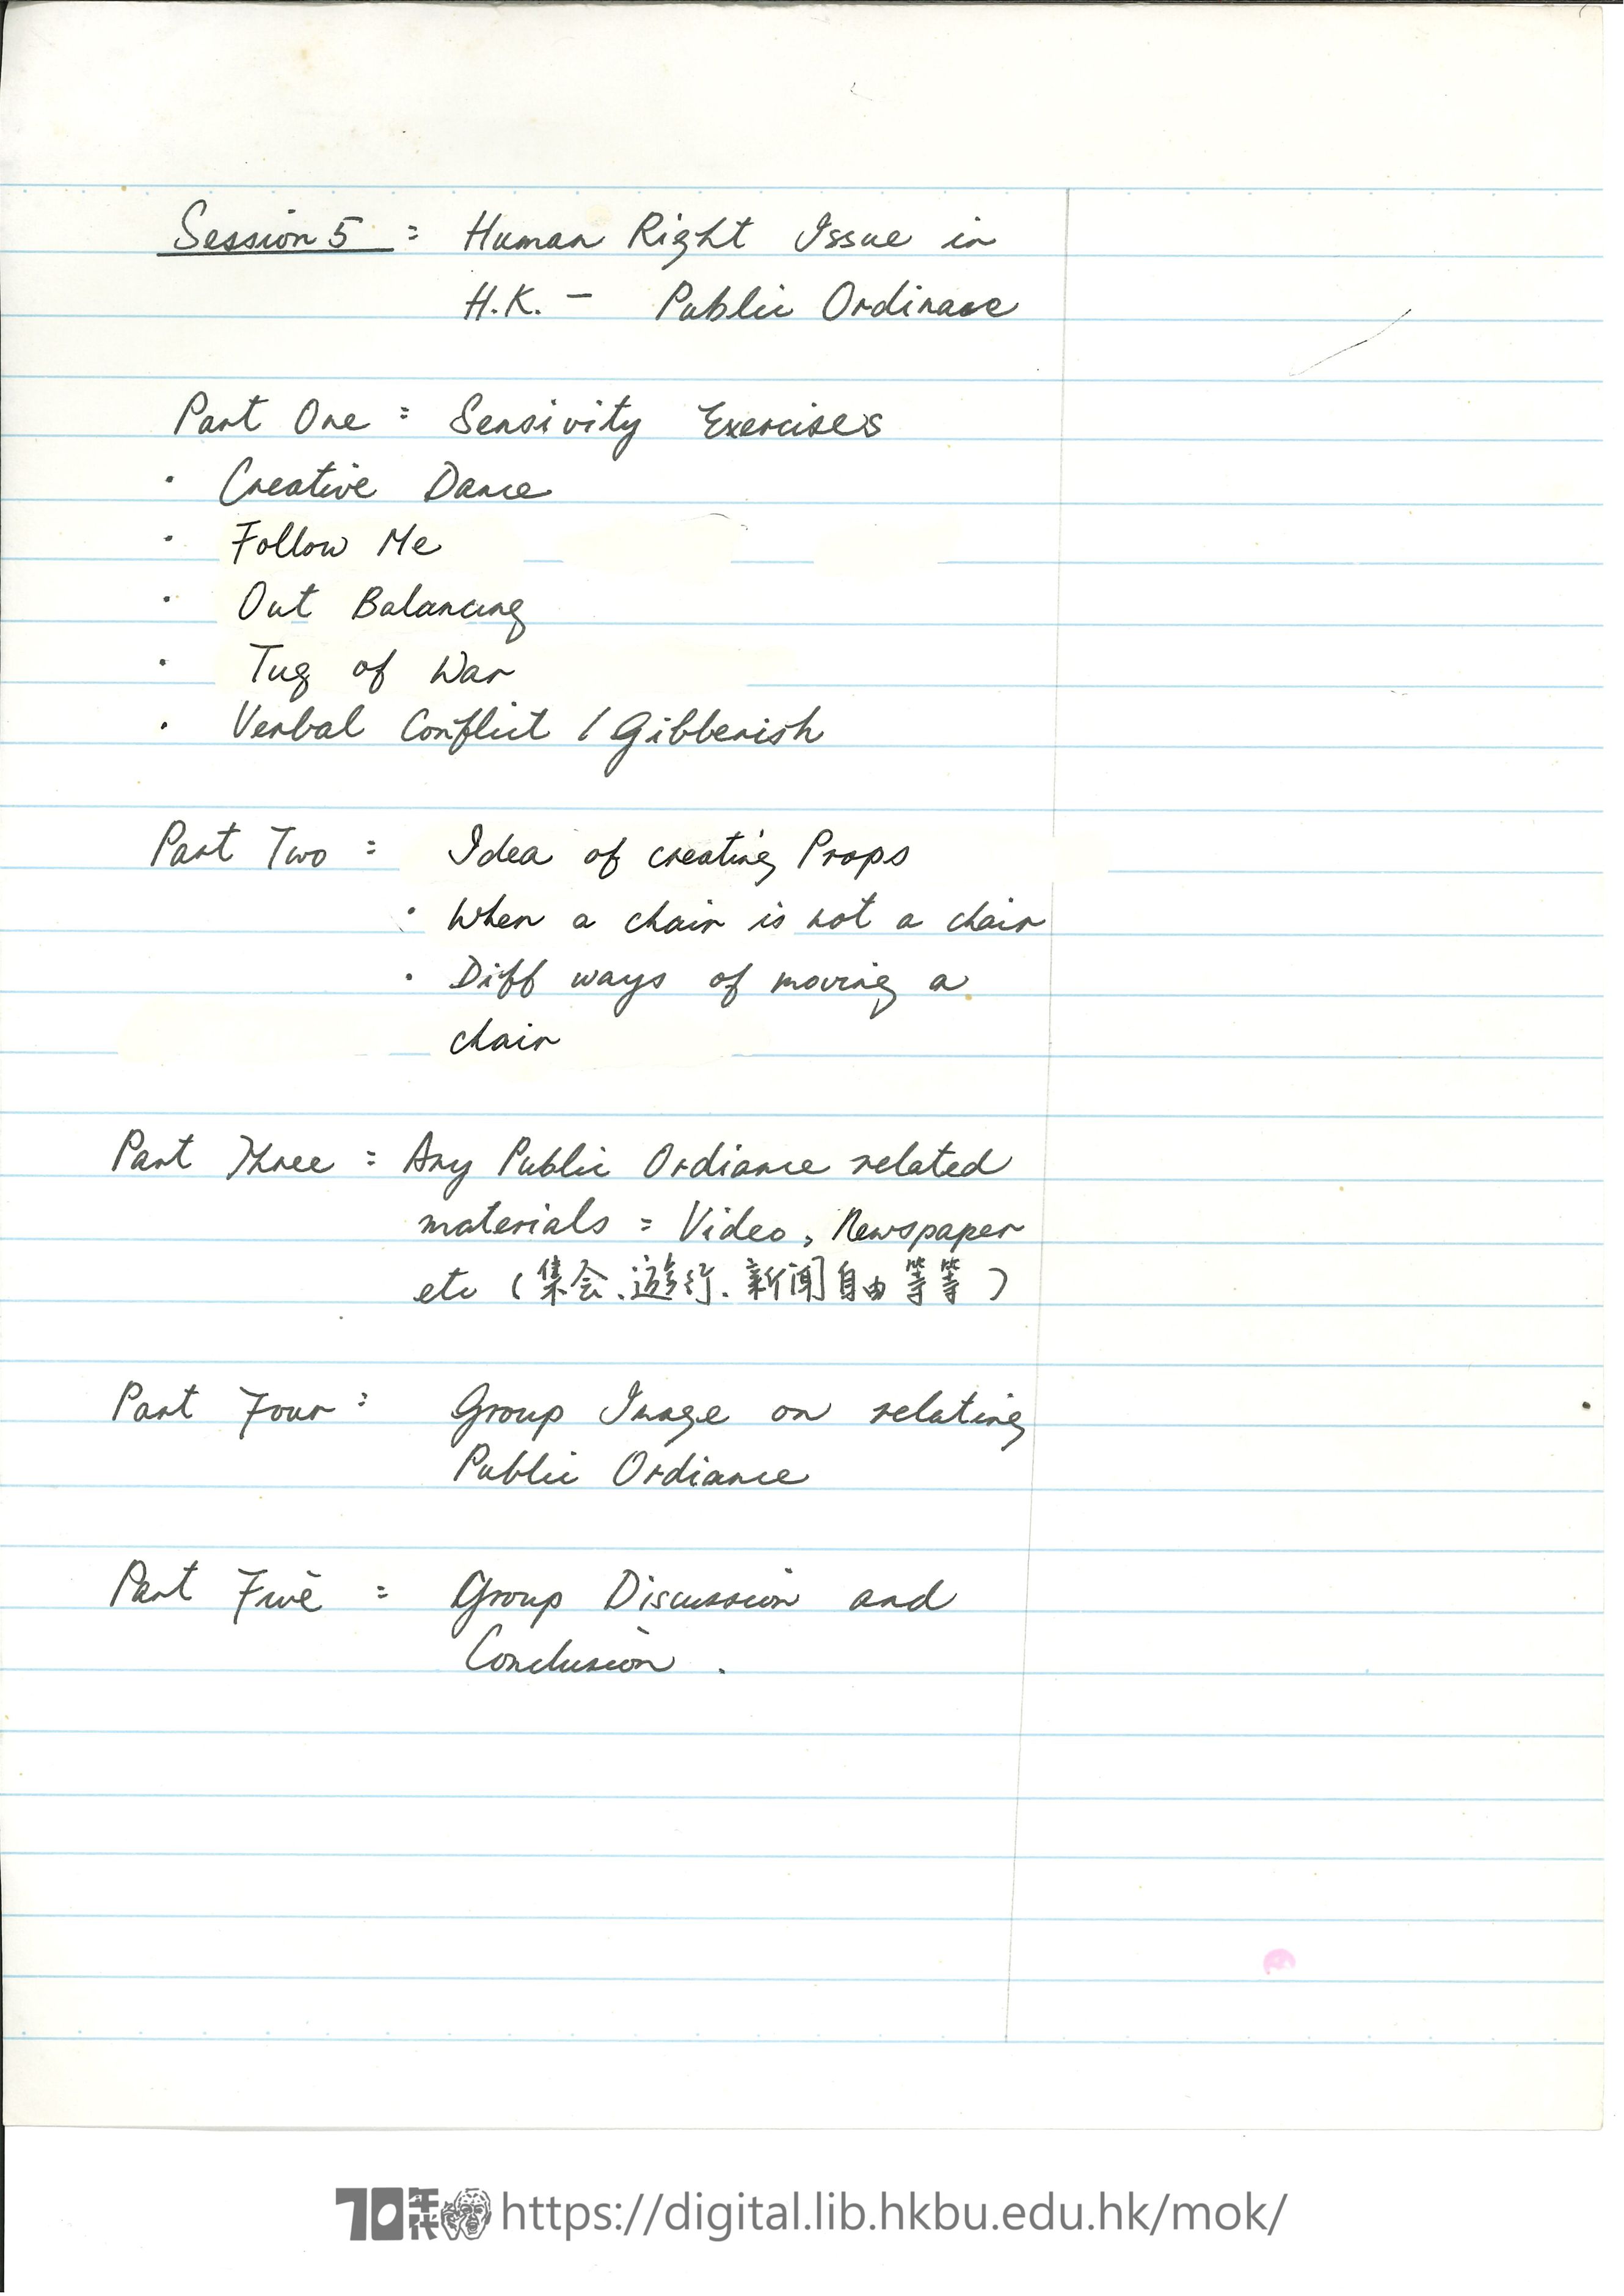 Session 5 : Human Right Issue in
H.K. - Public Ordinace
Part One : Sensivity Exercises
· Creative Dance
· Follow Me
· Out Balancing
· Tug of War
· Verbal Conflict / Gibberish
Part Two : Idea of creating Props
· When a chair is not a chair
· Diff ways of moving a
chair
Part Three : Any Public Ordiance related
materials : Video, Newspaper
etc (集会、遊行、新闻自由等等)
Part Four : Group Image on relating
Public Ordiance
Part Five : Group Discussion and
Conclusion.
70年代 https://digital.lib.hkbu.edu.hk/mok/